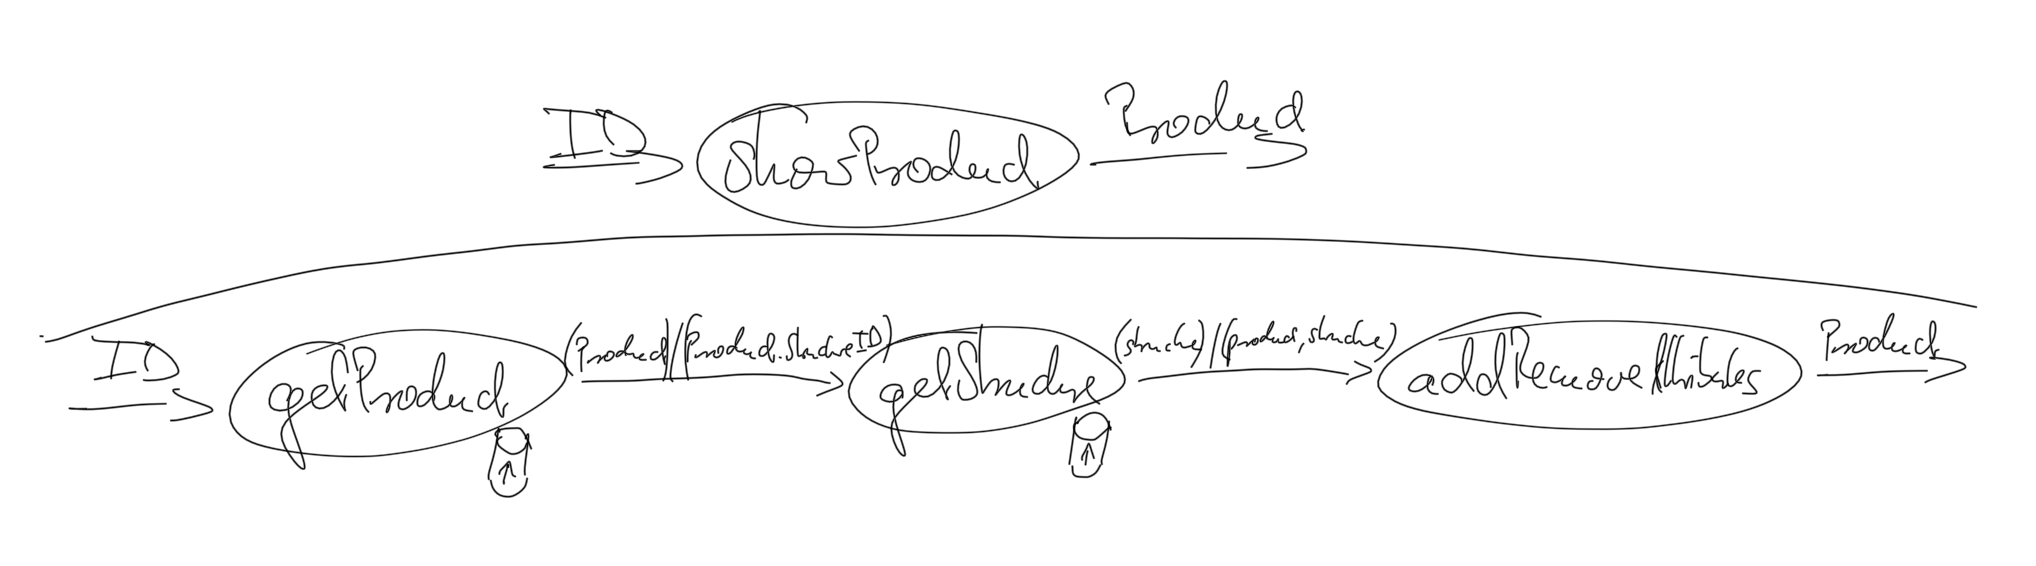 ID
Product
showProduct
ID
getProduct
(Product)//(Product.StructureID)
getStructure
(structure)//(product, structure)
addRemoveAttributes
Product